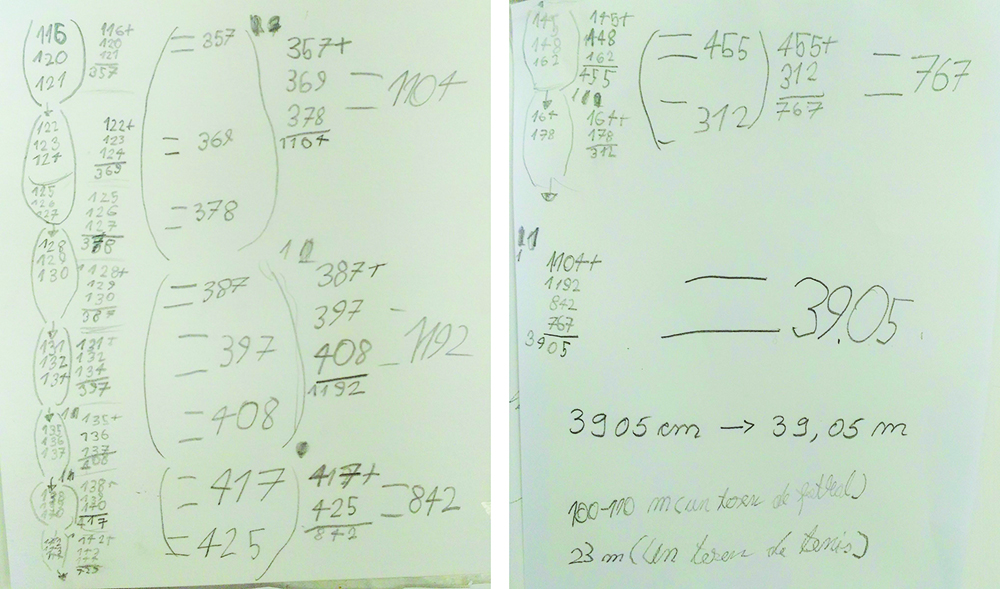 116
120
121
116+
120
121
357
122
123
124
122+
123
124
369
125
126
127
125
126
127
378
128
129
130
128+
129
130
387
131
132
134
131+
132
134
397
135
136
137
135+
136
137
408
138
139
140
138+
139
140
417
= 357
= 369
= 378
357+
369
378
1104
= 1104
= 387
= 397
= 408
387+
397
408
1192
= 1192
= 417
= 425
417+
425
842
= 842
145
148
162
145+
148
162
455
164
178
164+
178
312
= 455
= 312
455+
312
767
= 767
1104+
1192
842
767
3905
= 39.05
3905 cm → 39,05 m
100-110 m (un teren de fotbal)
23 m (un teren de tenis)